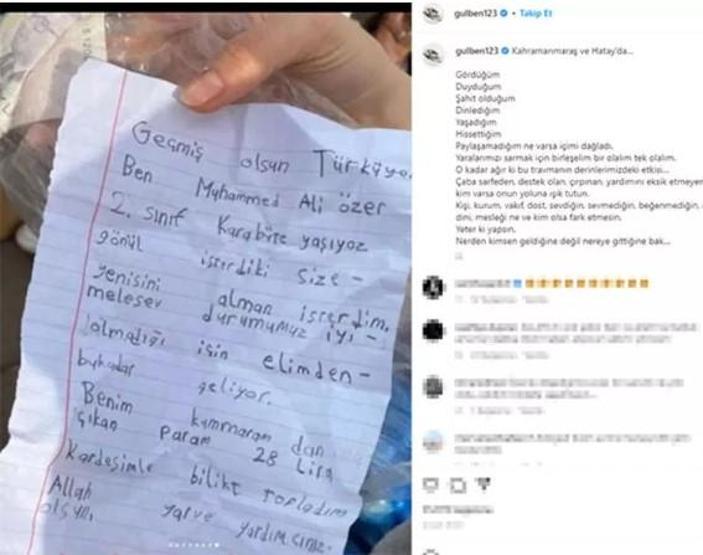 Geçmiş olsun Türkiyem
Ben Muhammed Ali özer
2. sınıf Karabüte yaşıyoz
gönül isterdiki size -
yenisini alman isterdim.
melesev durumumuz iyi -
olmadığı için elimden -
bukadar geliyor.
Benim kumnaram dan
çıkan param 28 Lira
Kardeşimle bilikt topladım
Allah yarve yardımcınız
olsun.
gulben123 • Takip Et
gulben123 Kahramanmaraş ve Hatay'da...
Gördüğüm
Duyduğum
Şahit olduğum
Dinlediğim
Yaşadığım
Hissettiğim
Paylaşamadığım ne varsa içimi dağladı.
Yaralarımızı sarmak için birleşelim bir olalım tek olalım.
O kadar ağır ki bu travmanın derinlerimizdeki etkisi...
Çaba sarfeden, destek olan, çırpınan, yardımını eksik etmeyen
kim varsa onun yoluna ışık tutun.
Kişi, kurum, vakıf, dost, sevdiğin, sevmediğin, beğenmediğin,
dini, mesleği ne ve kim olsa fark etmesin.
Yeter ki yapsın.
Nerden kimsen geldiğine değil nereye gittiğine bak...